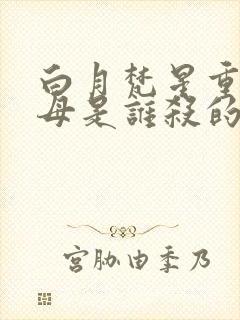 白月梵是重
母是誰殺的
宮胁由季乃